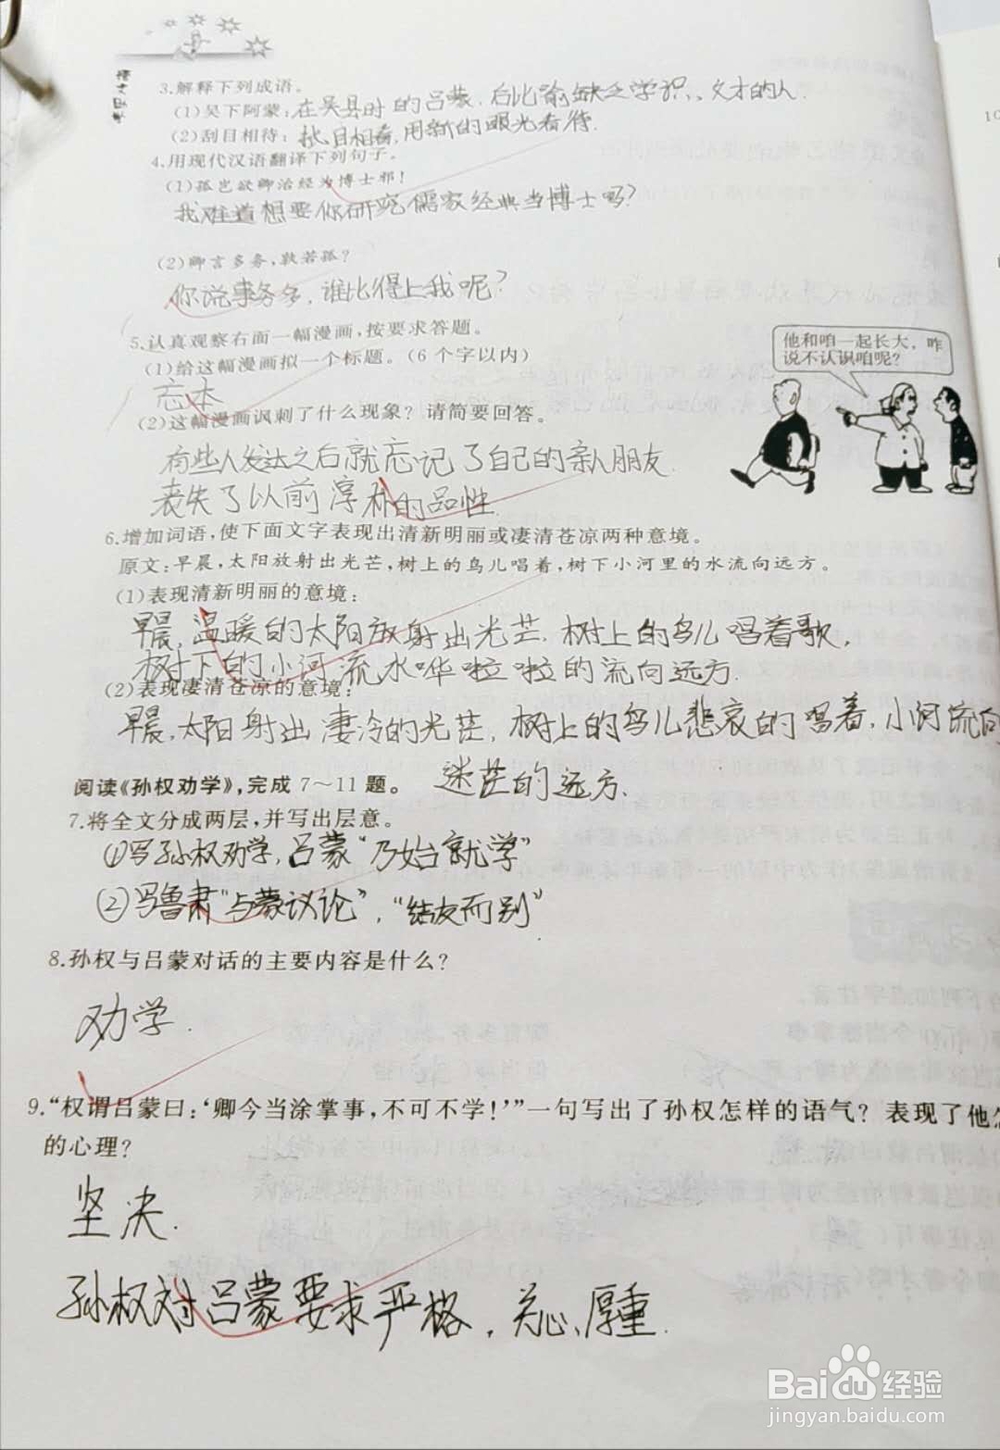 3.解释下列成语。
(1)吴下阿蒙:在吴县时的吕蒙.后比喻缺乏学识、文才的人.
(2)刮目相待:拭目相看,用新的眼光看待.
4.用现代汉语翻译下列句子。
(1)孤岂欲卿治经为博士邪!
我难道想要你研究儒家经典当博士吗?
(2)卿言多务,孰若孤?
你说事务多,谁比得上我呢?
5.认真观察右面一幅漫画,按要求答题。
(1)给这幅漫画拟一个标题。(6个字以内)
忘本
他和咱一起长大,咋
说不认识咱呢?
(2)这幅漫画讽刺了什么现象?请简要回答。
有些人发达之后就忘记了自己的亲人朋友.
丧失了以前淳朴的品性.
6.增加词语,使下面文字表现出清新明丽或凄清苍凉两种意境。
原文:早晨,太阳放射出光芒,树上的鸟儿唱着,树下小河里的水流向远方。
(1)表现清新明丽的意境:
早晨,温暖的太阳放射出光芒.树上的鸟儿唱着歌,
树下的小河流水哗啦啦的流向远方.
(2)表现凄清苍凉的意境:
早晨,太阳射出凄冷的光芒,树上的鸟儿悲哀的唱着,小河流向
迷茫的远方.
阅读《孙权劝学》,完成7~11题。
7.将全文分成两层,并写出层意。
①写孙权劝学,吕蒙“乃始就学”
②写鲁肃“与蒙议论”,“结友而别”
8.孙权与吕蒙对话的主要内容是什么?
劝学.
9.“权谓吕蒙曰:‘卿今当涂掌事,不可不学!’”一句写出了孙权怎样的语气?表现了他怎
的心理?
坚决.
孙权对吕蒙要求严格,关心、厚重.
Baidu经验
jingyan.baidu.com